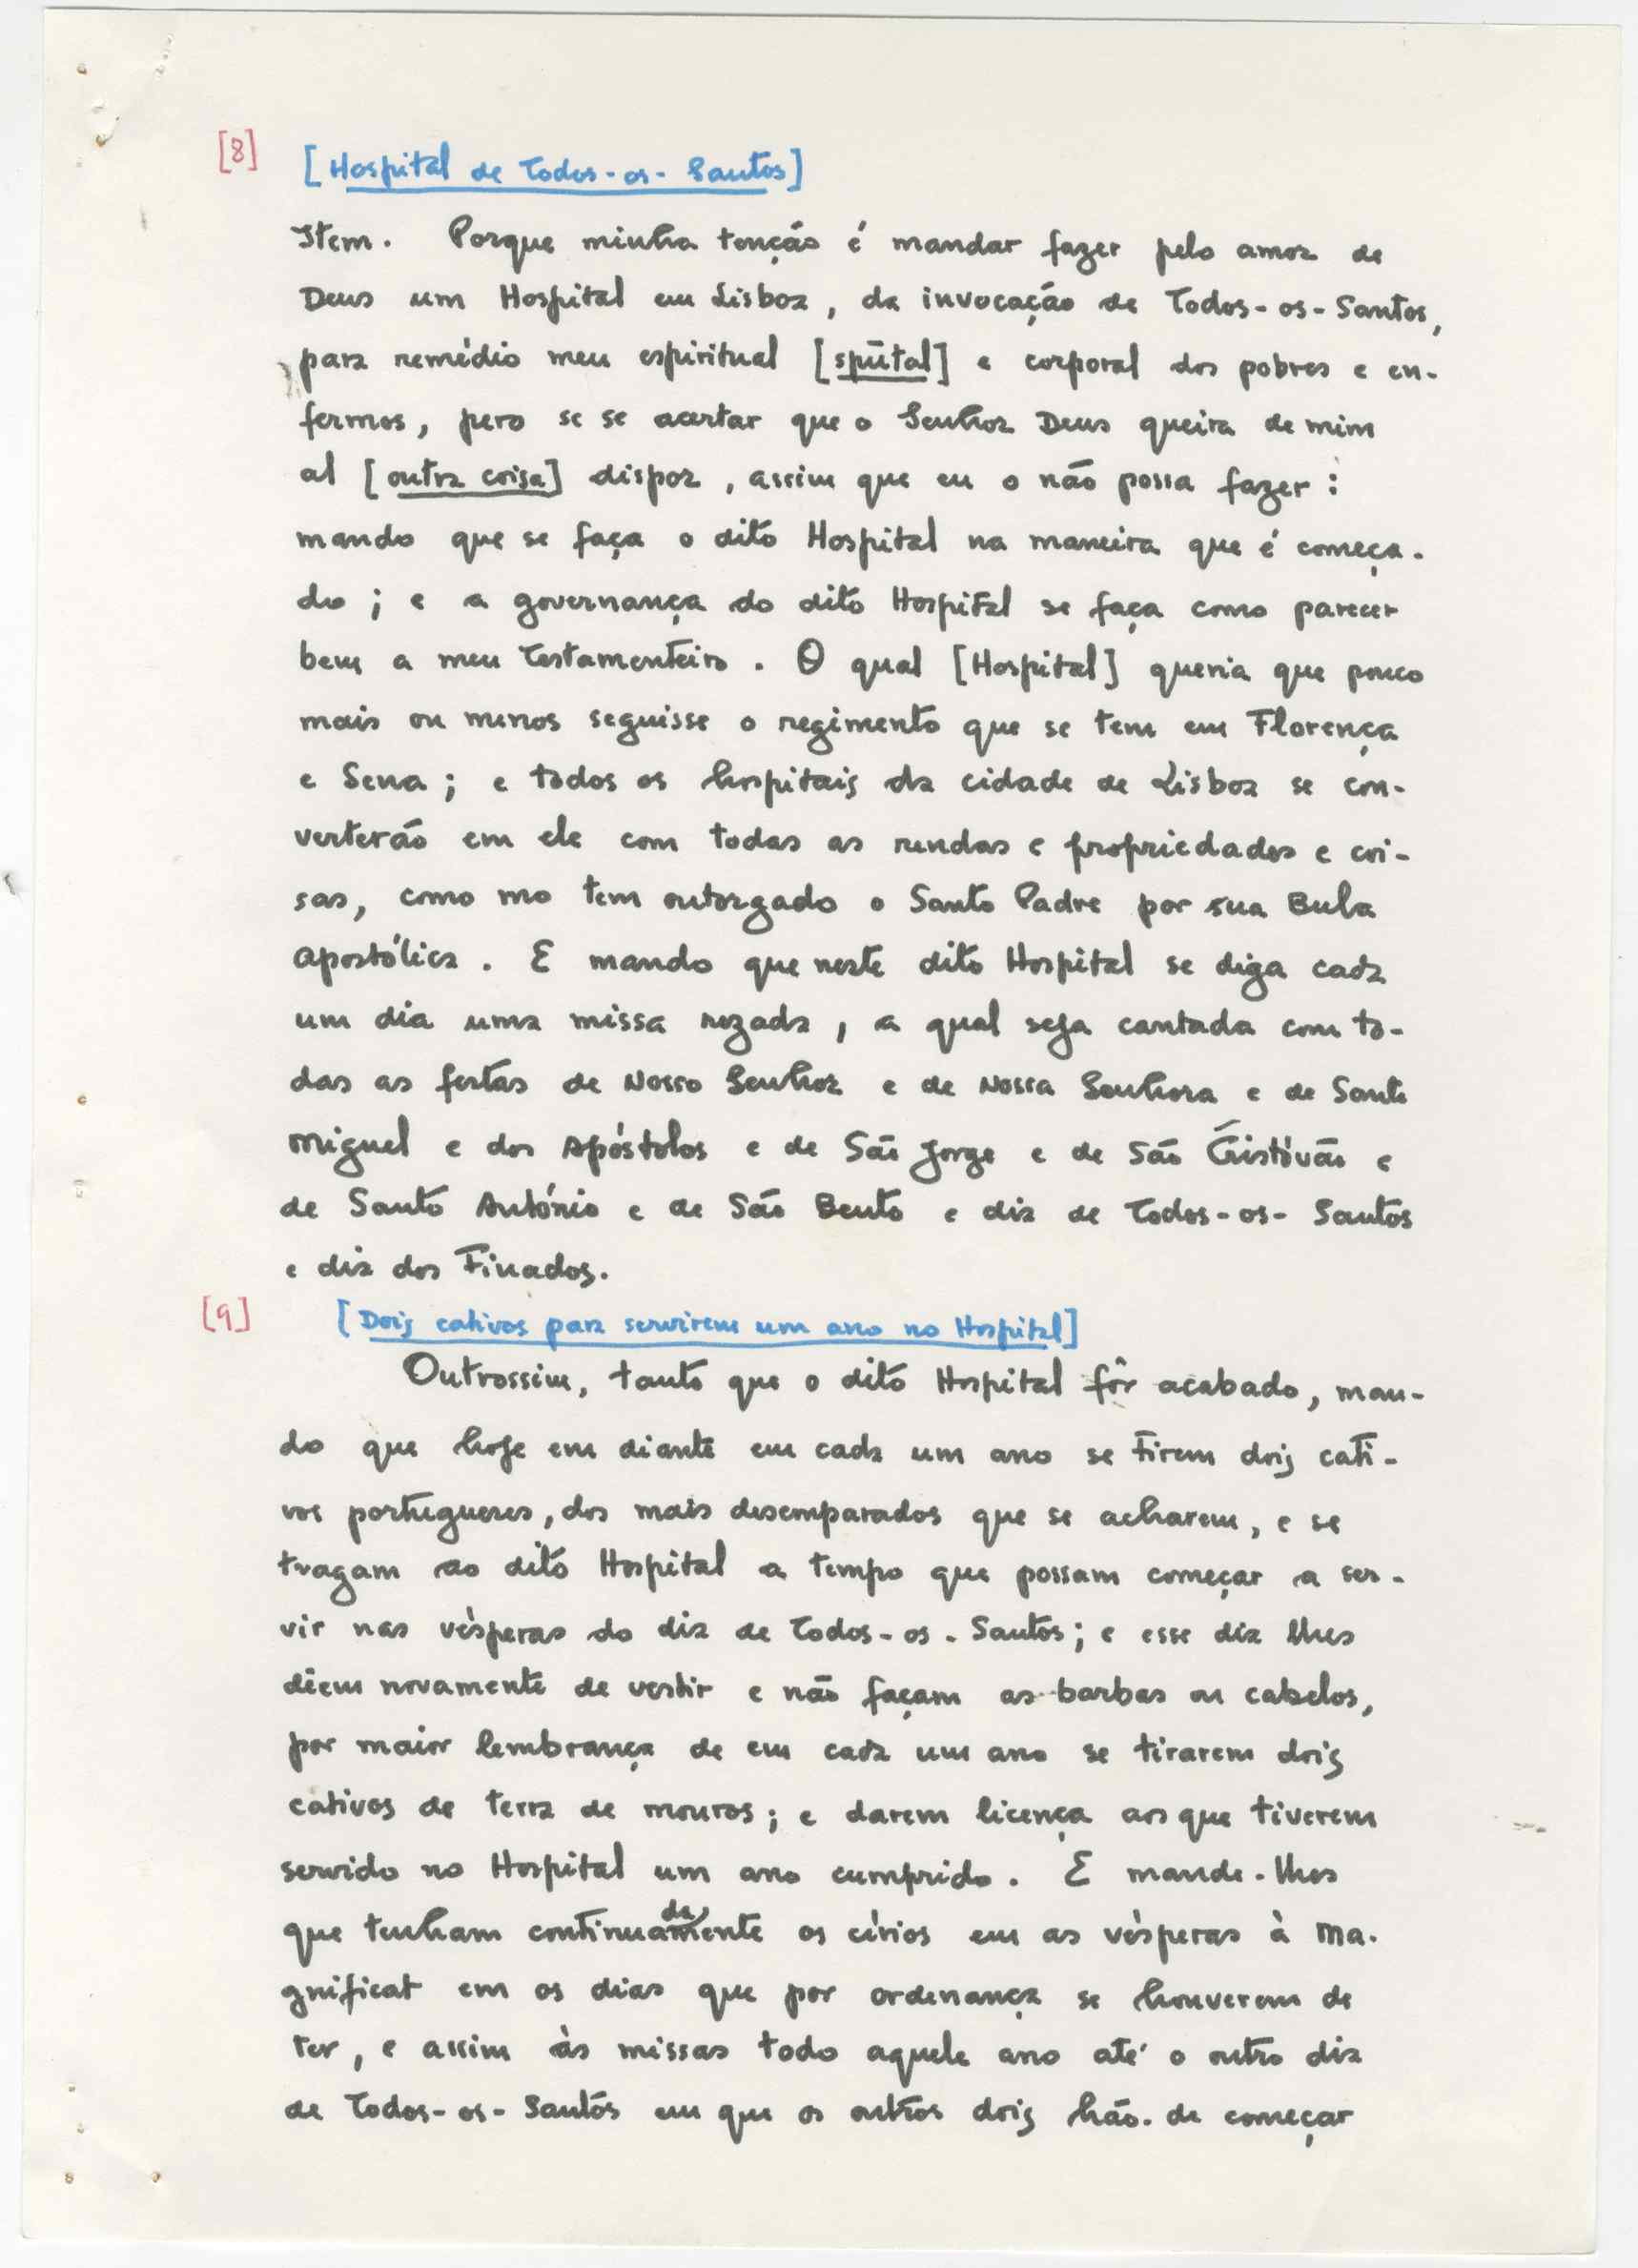 [8] [Hospital de Todos-os-Santos]
Item. Porque minha tenção é mandar fazer pelo amor de
Deus um Hospital em Lisboa, da invocação de Todos-os-Santos,
para remédio meu espiritual [spũtal] e corporal dos pobres e en-
fermos, pero se se acertar que o Senhor Deus queira de mim
al [outra coisa] dispor, assim que eu o não possa fazer:
mando que se faça o dito Hospital na maneira que é começa-
do; e a governança do dito Hospital se faça como parecer
bem a meu Testamenteiro. O qual [Hospital] queria que pouco
mais ou menos seguisse o regimento que se tem em Florença
e Sena; e todos os hospitais da cidade de Lisboa se con-
verterão em ele com todas as rendas e propriedades e coi-
sas, como mo tem outorgado o Santo Padre por sua Bula
Apostólica. E mando que neste dito Hospital se diga cada
um dia uma missa rezada, a qual seja cantada com to-
das as festas de Nosso Senhor e de Nossa Senhora e de Santo
Miguel e dos Apóstolos e de São Jorge e de São Cristóvão e
de Santo António e de São Bento e dia de Todos-os-Santos
e dia dos Finados.
[9] [Dois cativos para servirem um ano no Hospital]
Outrossim, tanto que o dito Hospital fôr acabado, man-
do que hoje em diante em cada um ano se tirem dois cati-
vos portugueses, dos mais desemparados que se acharem, e se
tragam ao dito Hospital a tempo que possam começar a ser-
vir nas vésperas do dia de Todos-os-Santos; e esse dia lhes
dêem novamente de vestir e não façam as barbas ou cabelos,
por maior lembrança de em cada um ano se tirarem dois
cativos de terra de mouros; e darem licença aos que tiverem
servido no Hospital um ano cumprido. E mando-lhes
que tenham continuadamente os círios em as vésperas à Ma-
gnificat em os dias que por ordenança se houverem de
ter, e assim às missas todo aquele ano até o outro dia
de Todos-os-Santos em que os outros dois hão-de começar